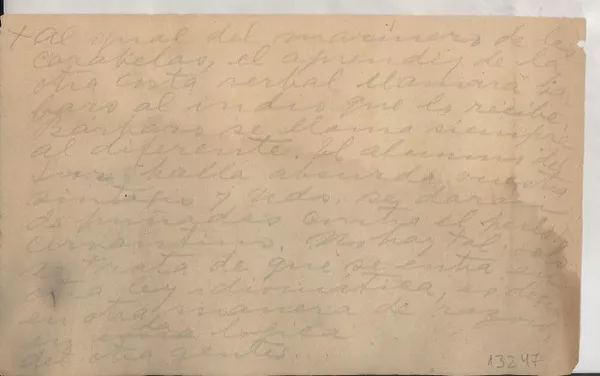 + Al igual del marinero de las
carabelas, el aprendiz de la
otra costa verbal llamará bár
baro al indio que lo recibe.
Bárbaro se llama siempre
al diferente. El alumno del
halla absurda
sintaxis y Uds. se darán
de puñadas contra el
No hay tal, solo
se trata de que se entra en
otra ley idiomática, es decir
en otra manera de razón,
en otra lógica
del otra gentes...
13247